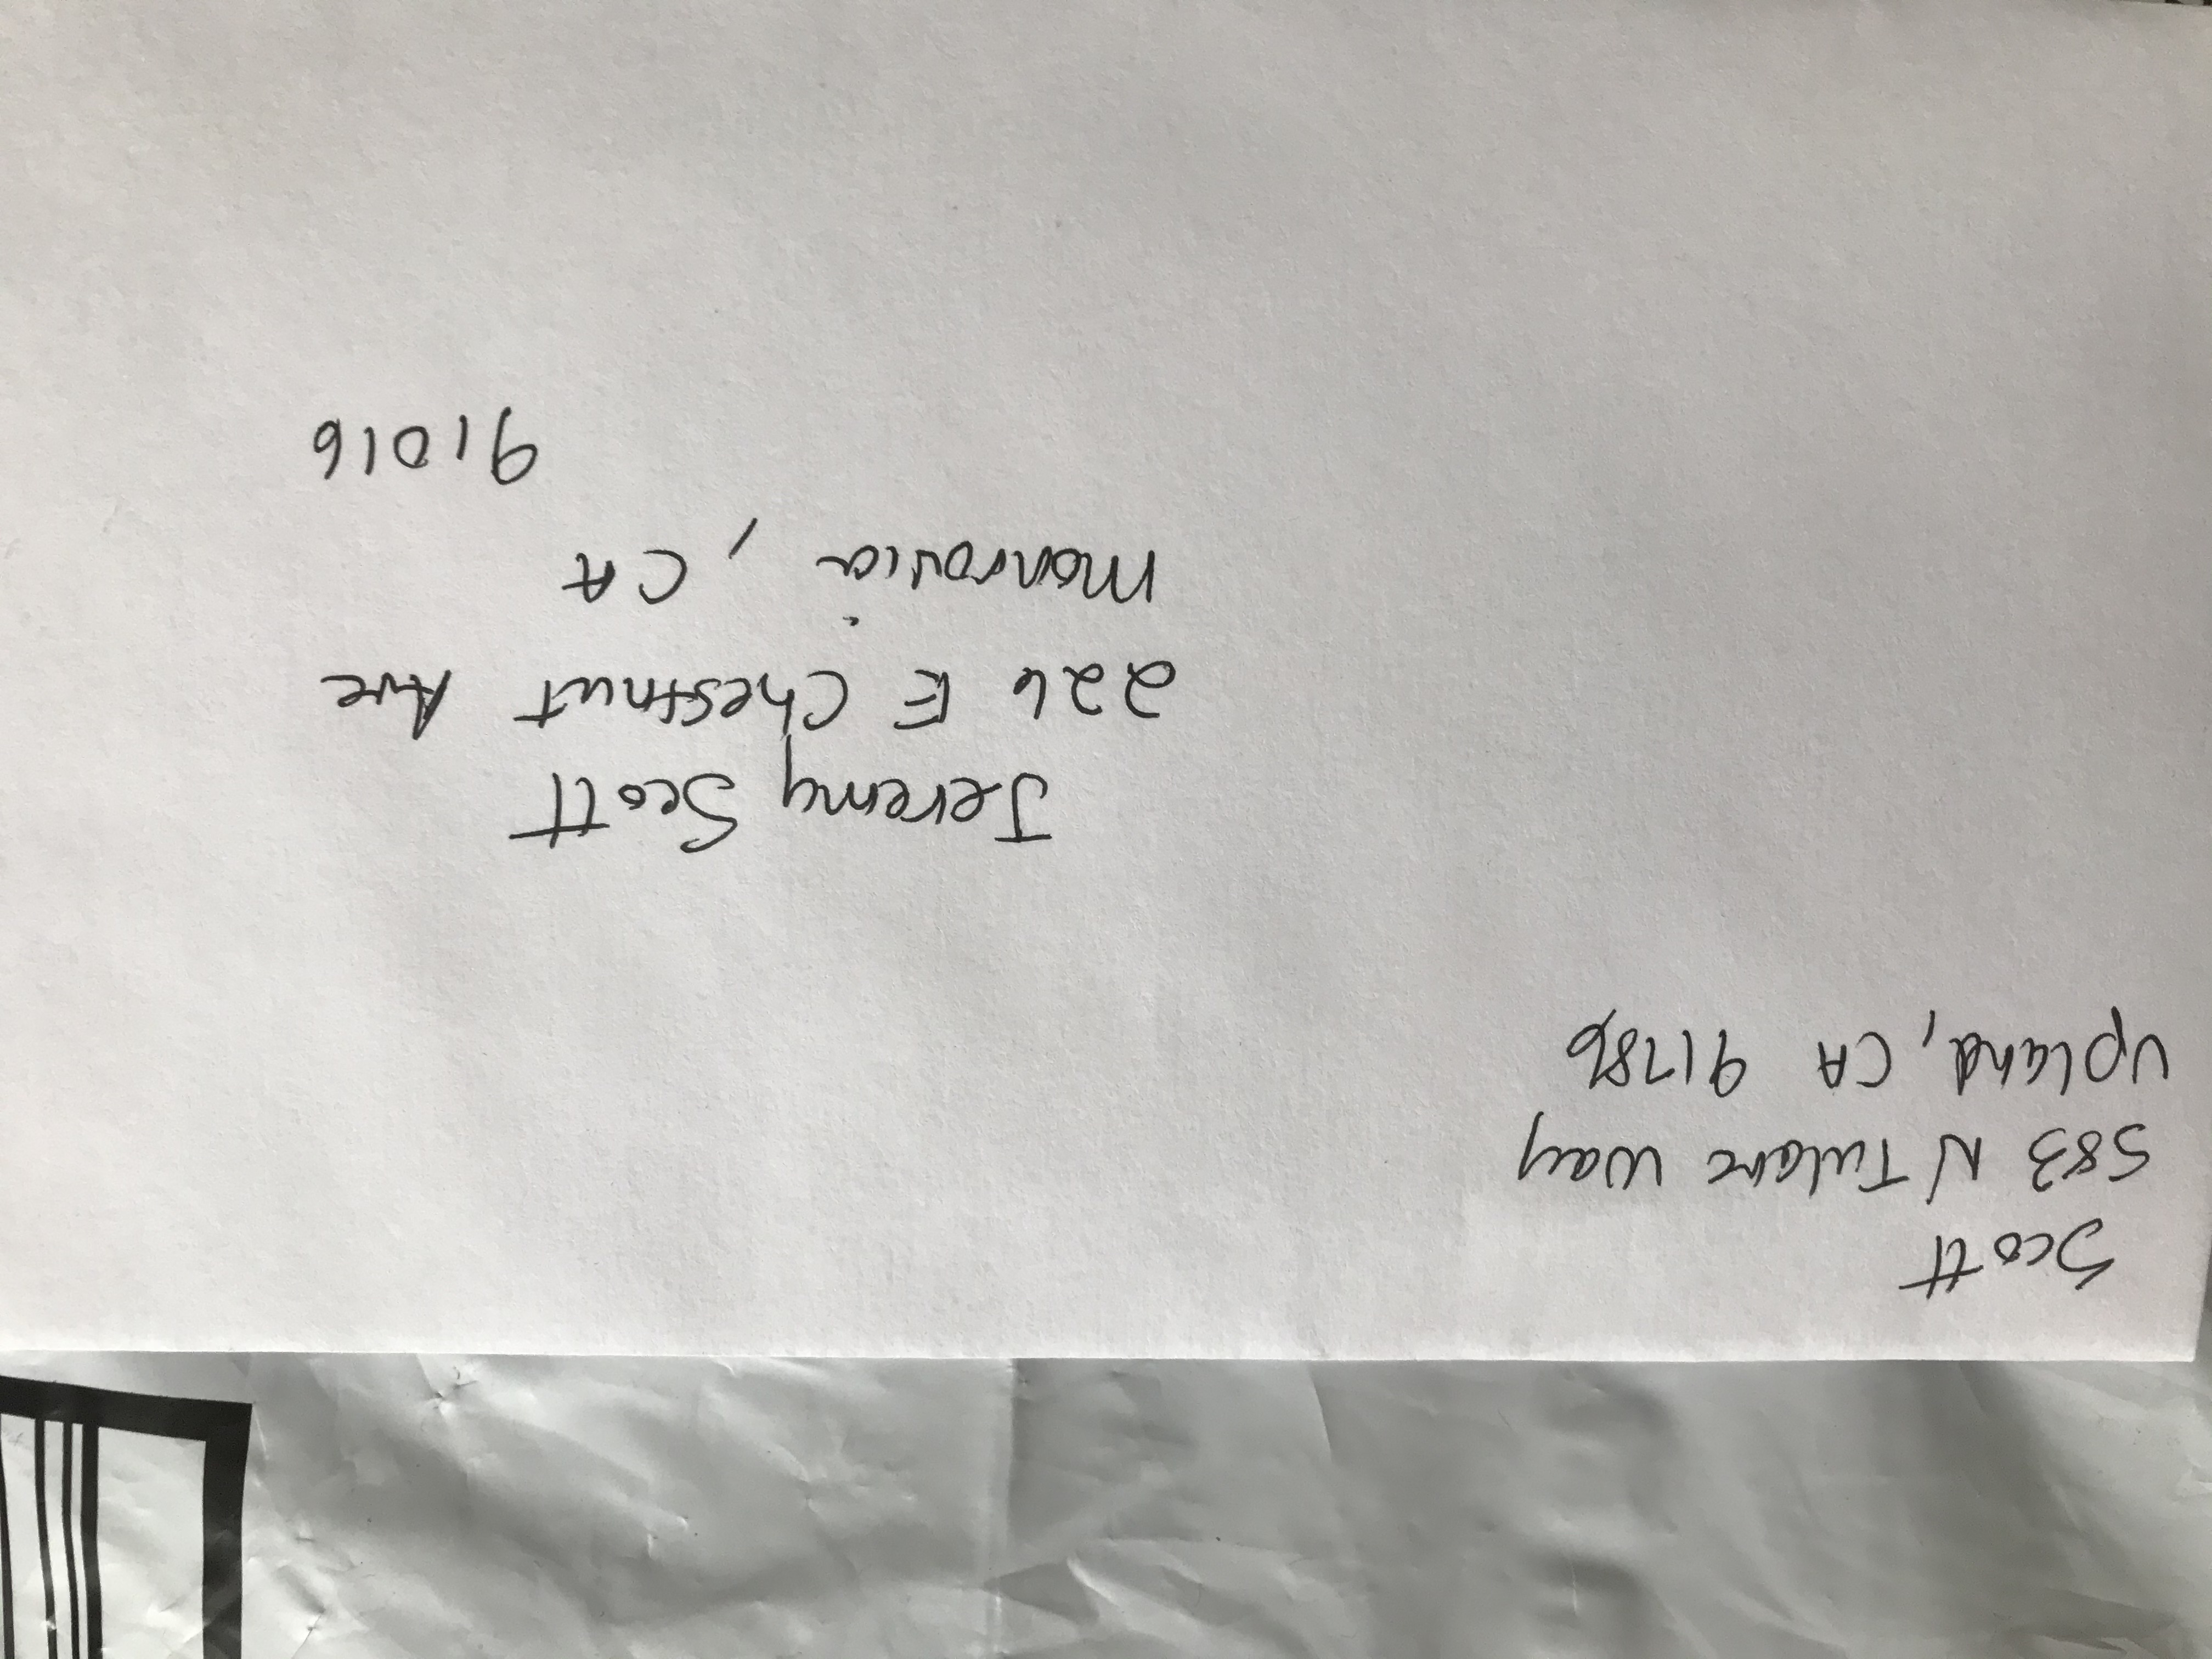 Scott
583 N Tulare Way
Upland, CA 91786
Jeremy Scott
226 E Chestnut Ave
Monrovia, CA
91016